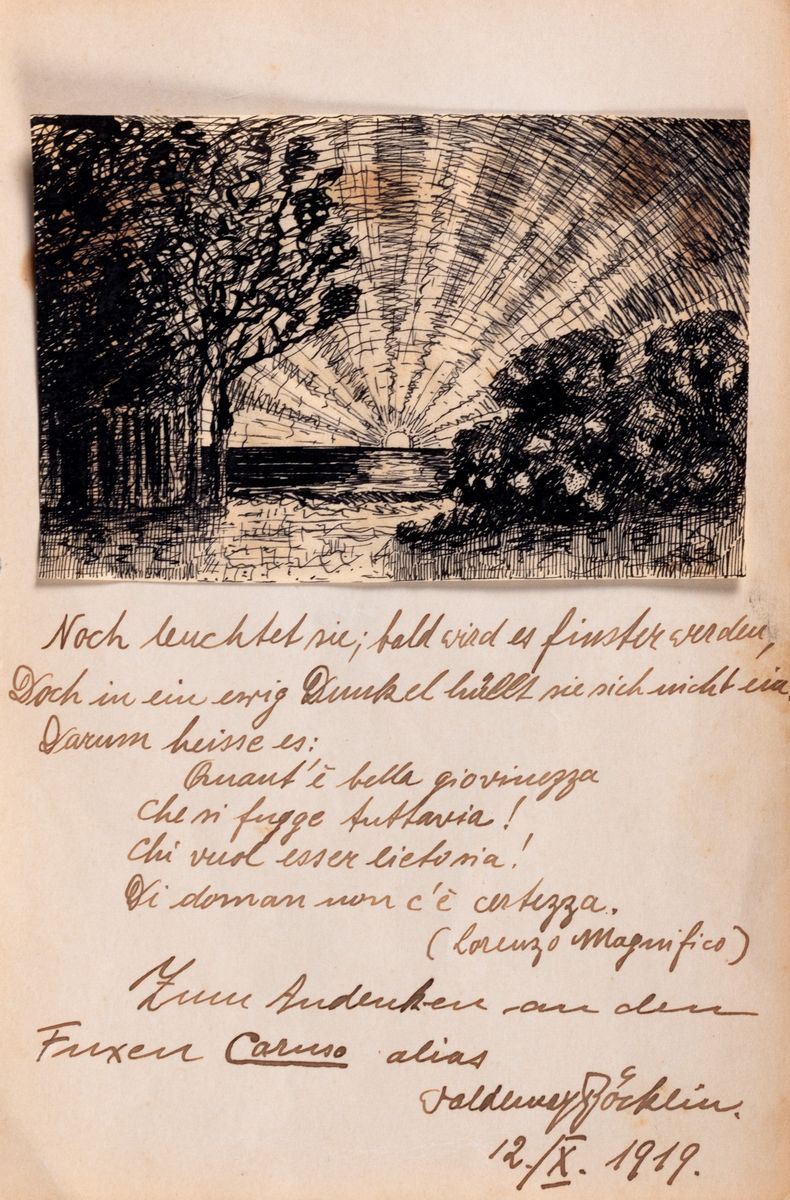 Noch leuchtet sie; bald wird es finster werden,
Doch in ein ewig Dunkel hüllt sie sich nicht ein.
Darum heisse es:
Quant'è bella giovinezza
Che si fugge tuttavia!
Chi vuol esser lieto sia!
Di doman non c'è certezza.
(Lorenzo Magnifico)
Zum Andenken an den
Fuxen Caruso alias
Valdemar Böcklin.
12./X. 1919.